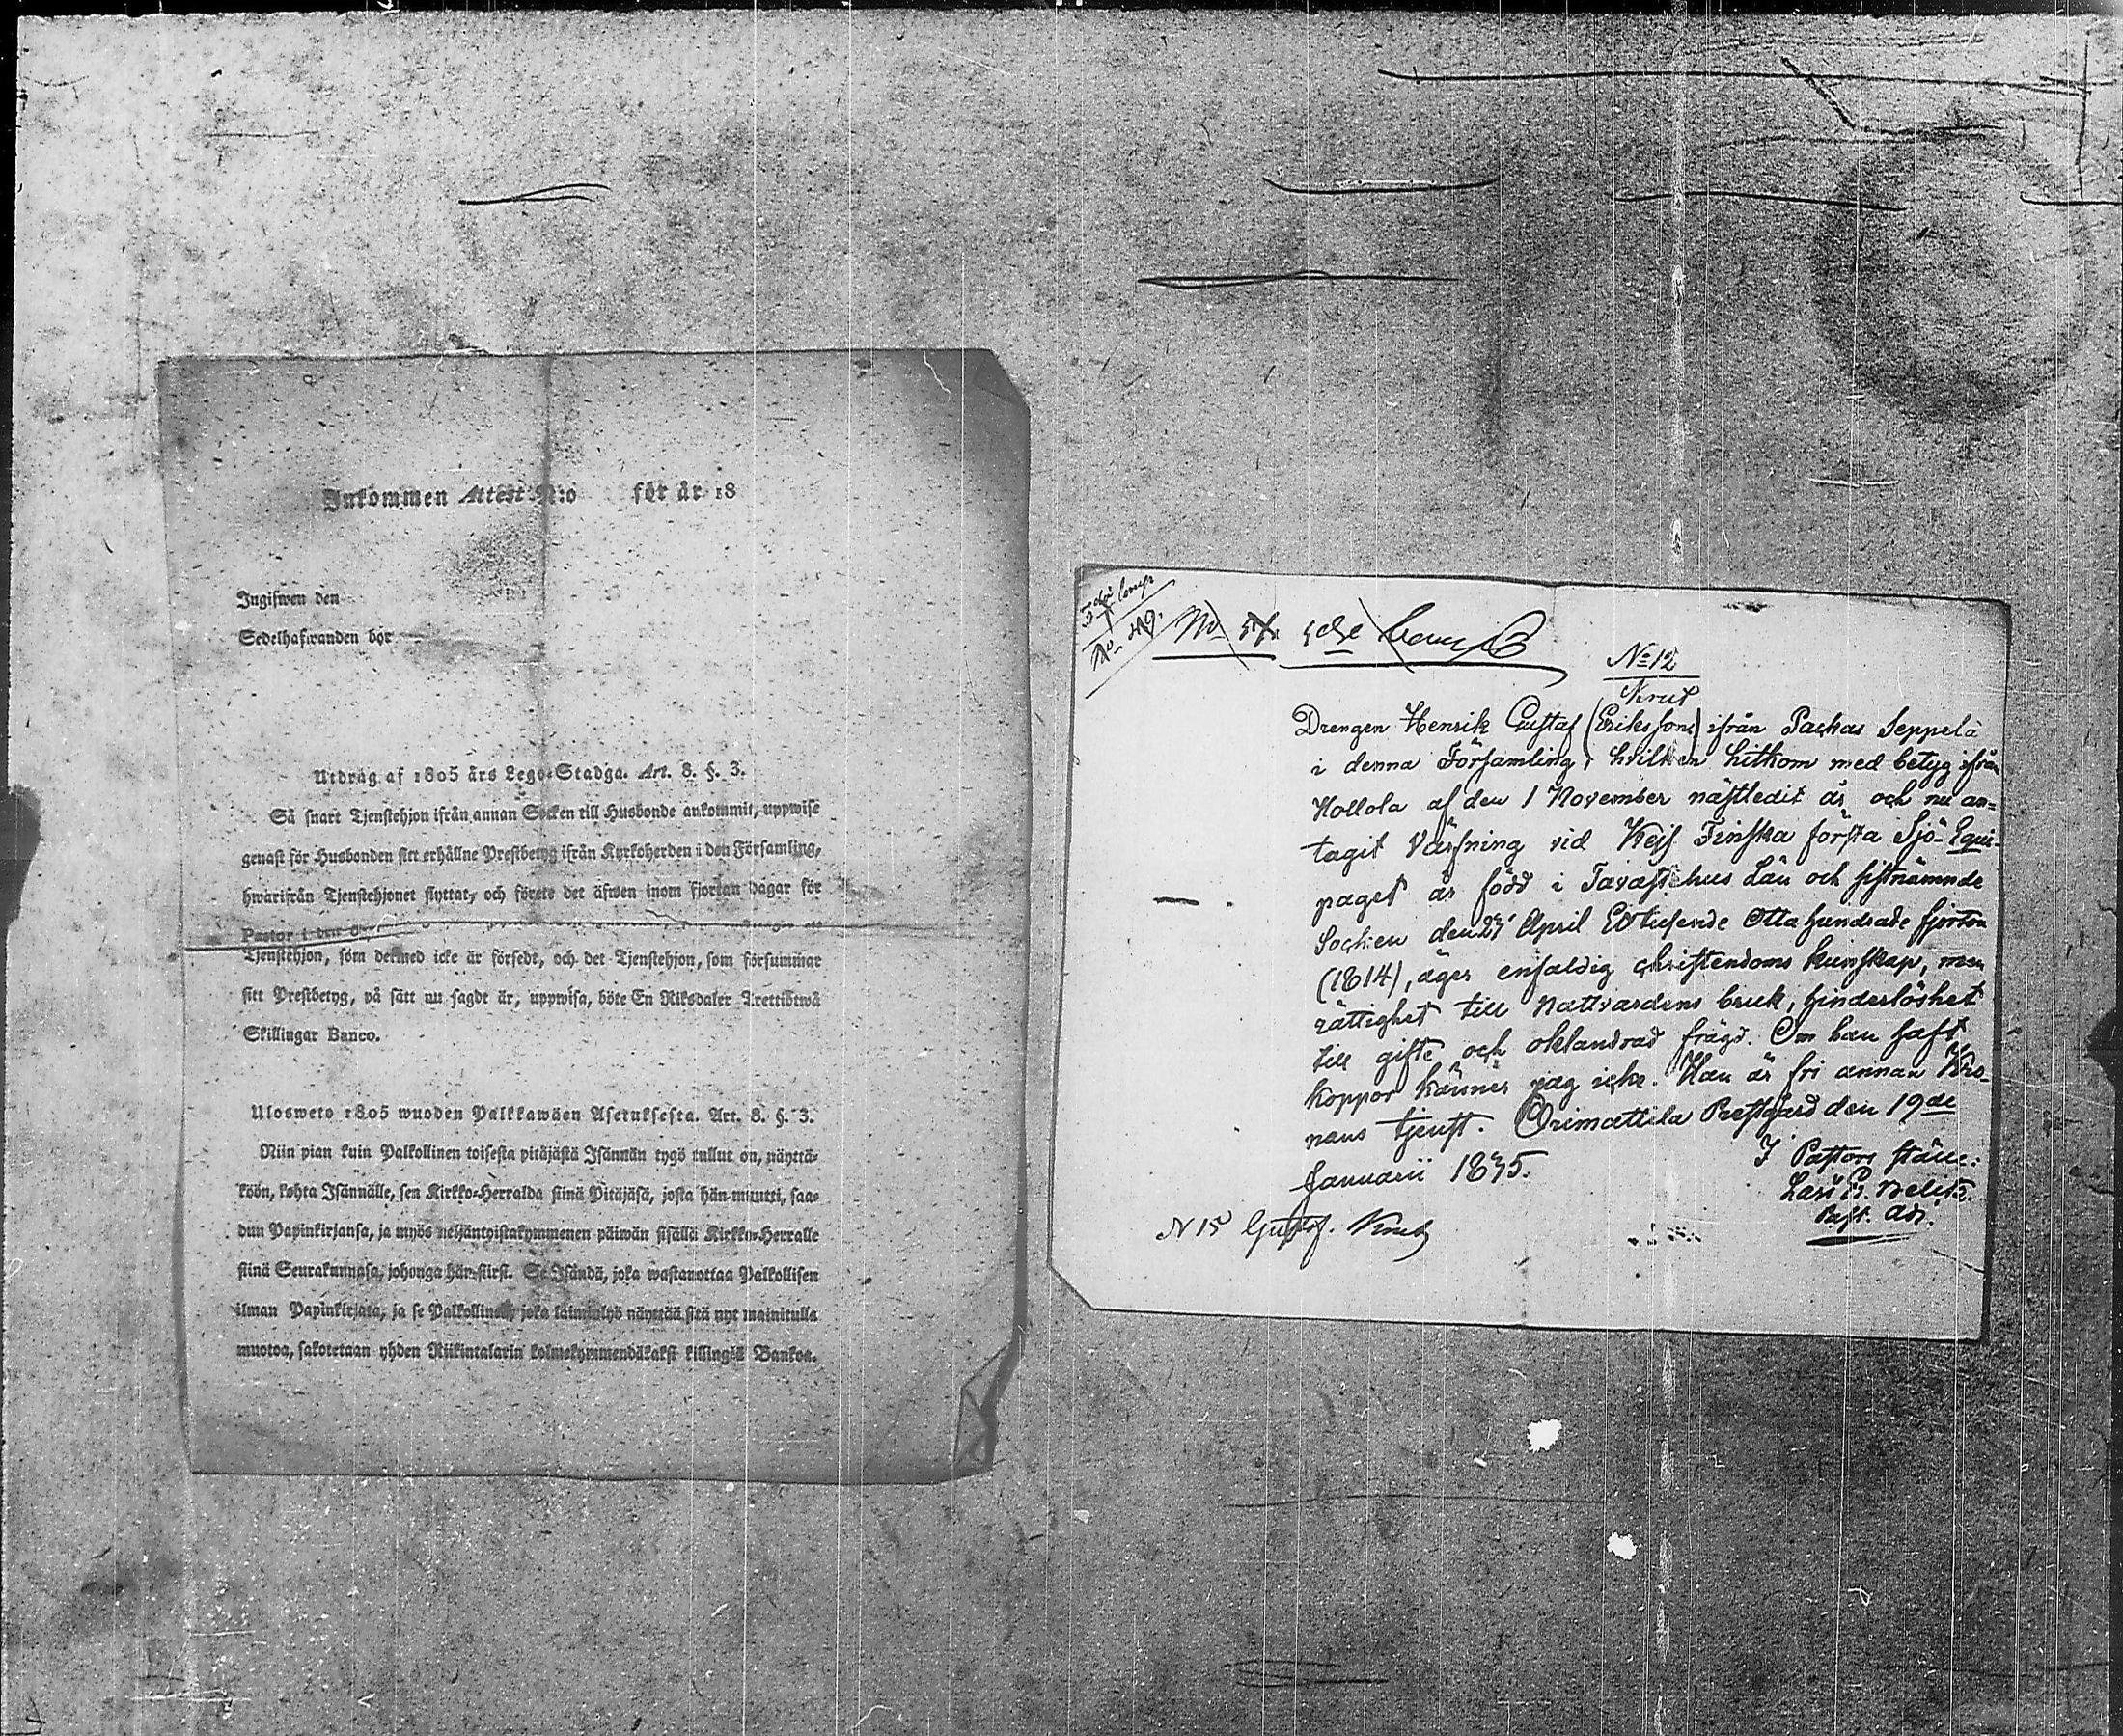 Inkommen Attest N:o för år 18
Ingifwen den
Sedelhafwanden bör
Utdrag af 1805 års Lego-Stadga. Art. 8. §. 3.
Så snart Tjenstehjon ifrån annan Socken till Husbonde ankommit, uppwise
genast för Husbonden sitt erhållne Prestbetyg ifrån Kyrkoherden i den Församling,
hwarifrån Tjenstehjonet flyttat, och förete det äfwen inom fjorton dagar för
Pastor i den
Tjenstehjon, som dermed icke är försedt, och det Tjenstehjon, som försummar
sitt Prestbetyg, på sätt nu sagdt är, uppwisa, böte En Riksdaler Trettiotwå
Skillingar Banco.
Ulosweto 1805 wuoden Palkkawäen Asetuksesta. Art. 8. §. 3.
Niin pian kuin Palkollinen toisesta pitäjästä Isännän tygö tullut on, näyttä-
köön, kohta Isännälle, sen Kirkko-Herralda siinä Pitäjäsä, josta hän muutti, saa-
dun Papinkirjansa, ja myös neljäntoistakymmenen päiwän sisällä Kirkko-Herralle
siinä Seurakunnasa, johonga hän siirst. Se Isändä, joka wastanottaa Palkollisen
ilman Papinkirjata, ja se Palkollinen, joka laiminlyö näyttää sitä nyt mainitulla
muotoa, sakotetaan yhden Riikintalarin kolmekymmendäkaksi killingiä Bankoa.
5 de Comp
No 219.
No 57. 5de Comp
No 12
Krut
Drengen Henrik Gustaf (Eriksson) ifrån Packas Seppelä
i denna Församling, hvilken hitkom med betyg ifrån
Hollola af den 1 November nästledit år och nu an-
tagit Värfning vid Kejs. Finska första Sjö-Equi-
paget är född i Tavastehus Län och sistnämnde
Sochen den 27 April Ettusende Otta hundrade fjorton
(1814), äger enfaldig christendoms kunskap, men
rättighet till Nattvardens bruk, hinderlöshet
till gifte och oklandrad frägd. Om han haft
koppor känner jag icke. Han är fri annan Kro-
nans tjenst. Orimattila Prestgård den 19de
Januarii 1835.
I Pastors ställe:
Past. Adj.
N 15 Gustaf. Krut